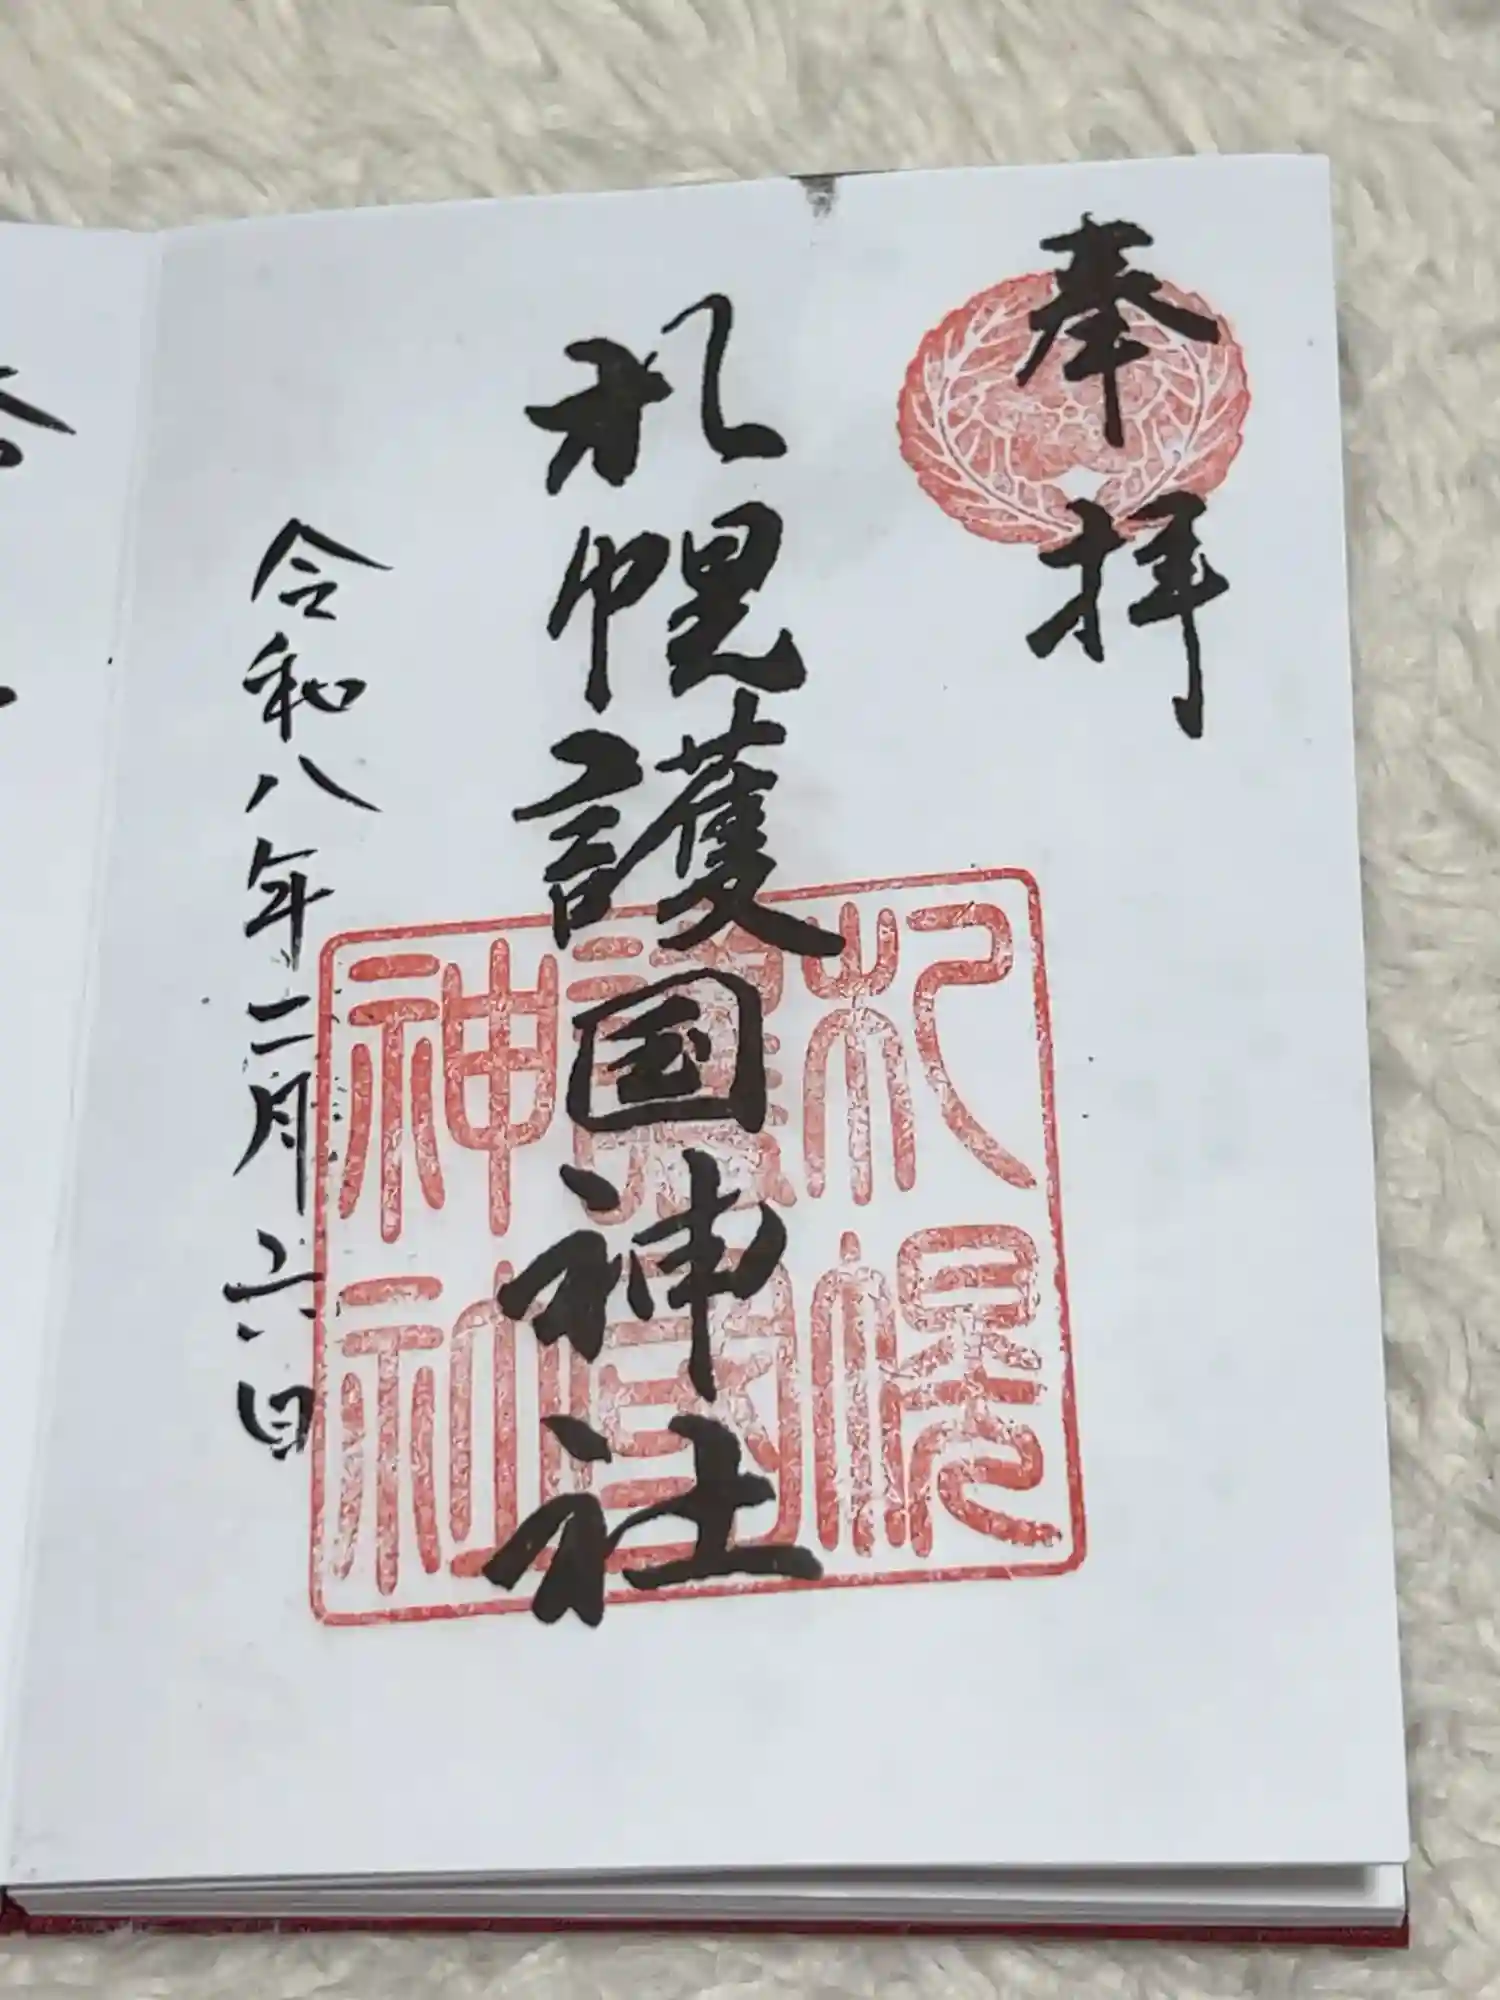 奉拝
札幌護国神社
札幌
護國
神社
令和八年二月六日